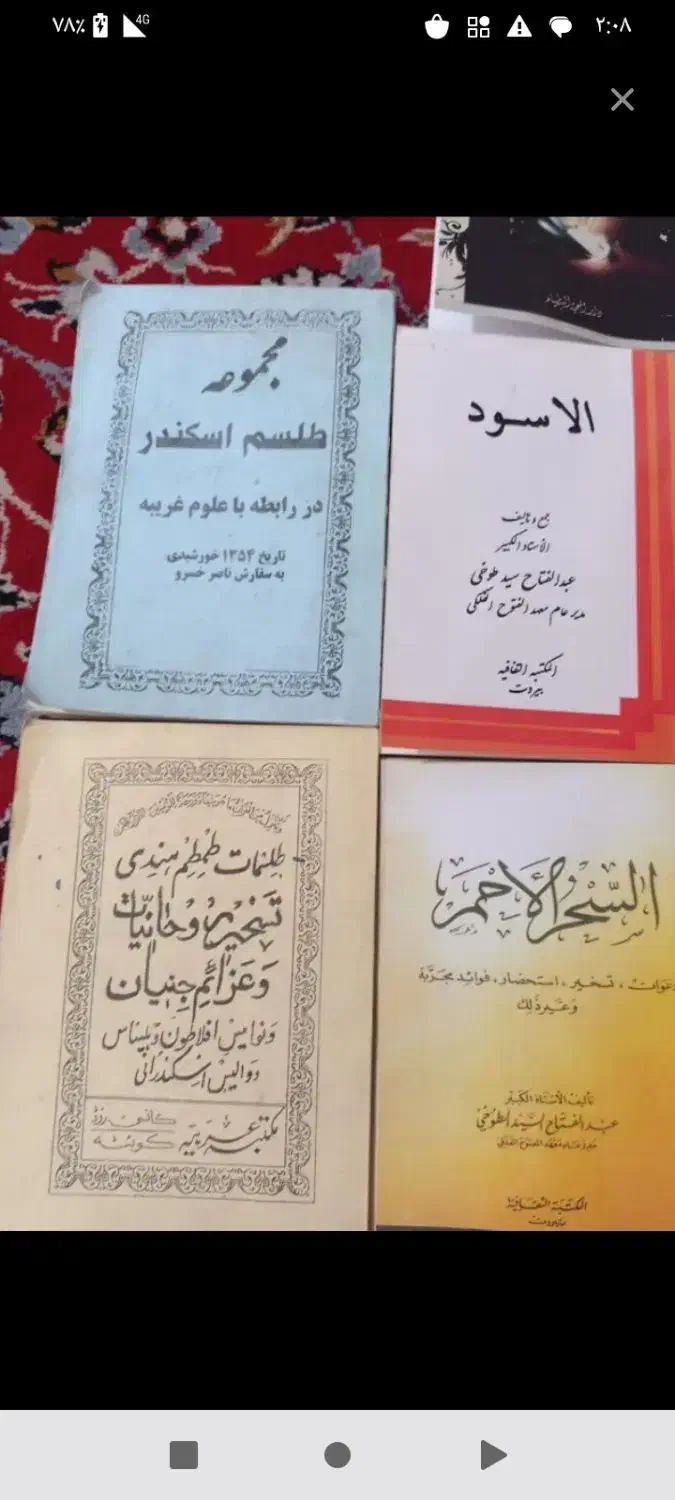 ۷۸٪
4G
۲:۰۸
مجموعه
طلسم اسکندر
در رابطه با علوم غریبه
تاریخ ۱۳۵۴ خورشیدی
به سفارش ناصر خسرو
الاسود
جمع و تالیف
الأستاذ الكبير
عبدالفتاح سید طوخی
مدیر عام معهد الفتوح الفلكی
المكتبه الثقافیه
بیروت
طلسمات طمطم هندی
تسخیر روحانیات
و عزائم جنیان
و نوامیس افلاطون و بلیناس
دوالیس اسکندرانی
مکتبه عربیه
کانسی روڈ
کوئٹه
السحر الأحمر
دعوات، تسخير، استحضار، فوائد مجربة
وغير ذلك
تأليف الأستاذ الكبير
عبد الفتاح السيد الطوخي
مدير عام معهد الفتوح الفلكي
المكتبة الثقافية
بيروت